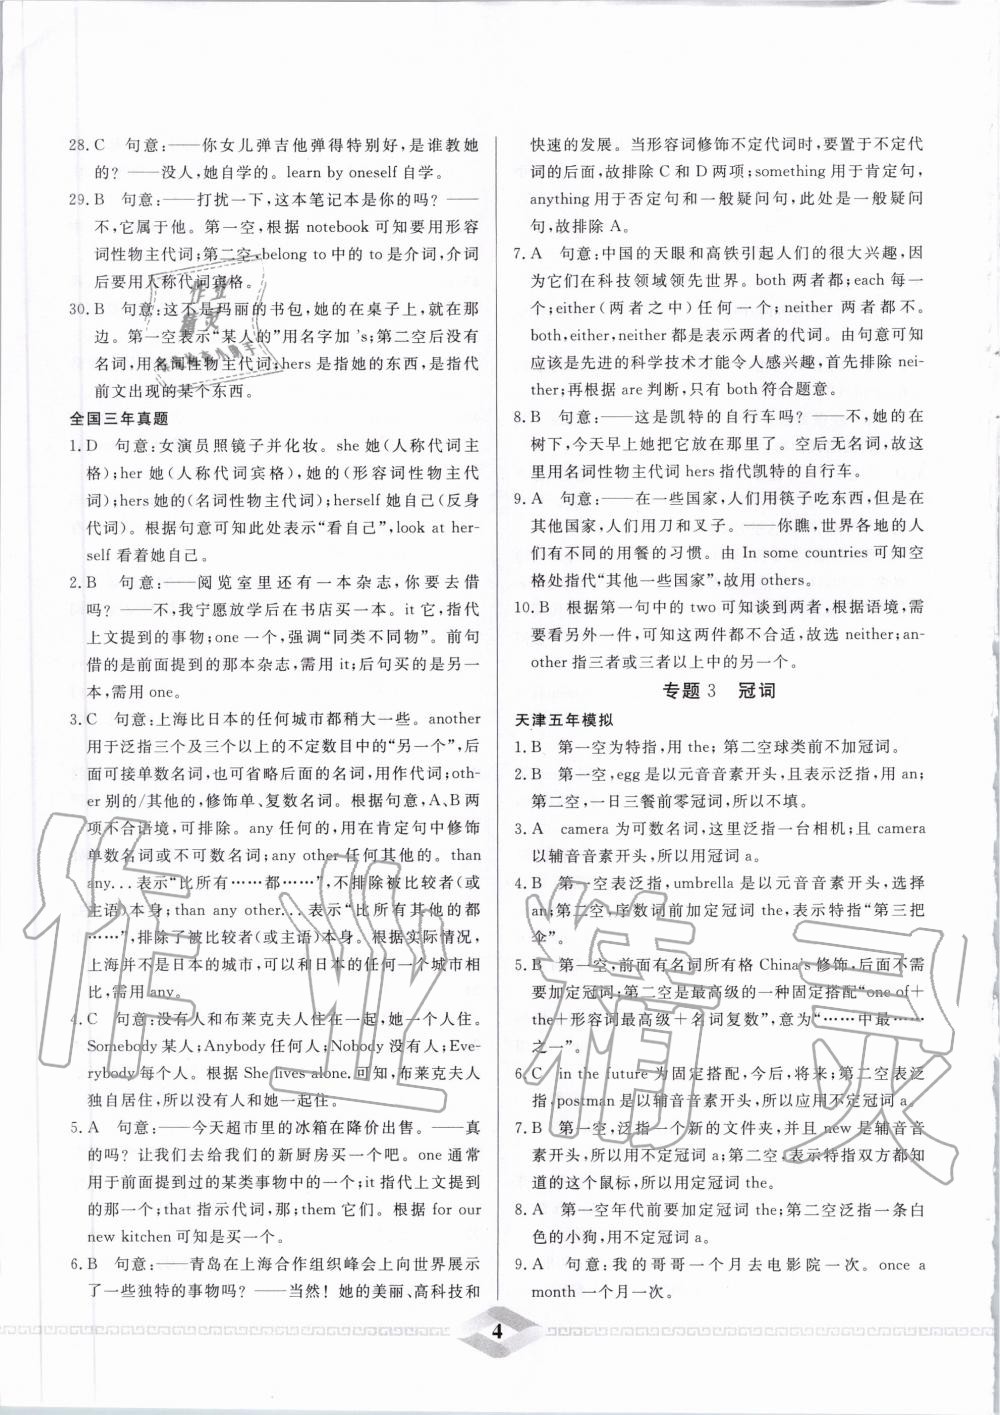 28. C　句意:——你女儿弹吉他弹得特别好,是谁教她
的? ——没人,她自学的。learn by oneself 自学。
29. B　句意:——打扰一下,这本笔记本是你的吗? ——
不,它属于他。第一空,根据 notebook 可知要用形容
词性物主代词;第二空,belong to 中的 to 是介词,介词
后要用人称代词宾格。
30. B　句意:这不是玛丽的书包,她的在桌子上,就在那
边。第一空表示“某人的”用名字加 's;第二空后没有
名词,用名词性物主代词;hers 是指她的东西,是指代
前文出现的某个东西。
全国三年真题
1. D　句意:女演员照镜子并化妆。she 她(人称代词主
格);her 她(人称代词宾格),她的(形容词性物主代
词);hers 她的(名词性物主代词);herself 她自己(反身
代词)。根据句意可知此处表示“看自己”,look at her-
self 看着她自己。
2. B　句意:——阅览室里还有一本杂志,你要去借
吗? ——不,我宁愿放学后在书店买一本。it 它,指代
上文提到的事物;one 一个,强调“同类不同物”。前句
借的是前面提到的那本杂志,需用 it;后句买的是另一
本,需用 one。
3. C　句意:上海比日本的任何城市都稍大一些。another
用于泛指三个及三个以上的不定数目中的“另一个”,后
面可接单数名词,也可省略后面的名词,用作代词;oth-
er 别的/其他的,修饰单、复数名词。根据句意,A、B两
项不合语境,可排除。any 任何的,用在肯定句中修饰
单数名词或不可数名词;any other 任何其他的。than
any... 表示“比所有……都……”,不排除被比较者(或
主语)本身;than any other... 表示“比所有其他的都
……”,排除了被比较者(或主语)本身。根据实际情况,
上海并不是日本的城市,可以和日本的任何一个城市相
比,需用 any。
4. C　句意:没有人和布莱克夫人住在一起,她一个人住。
Somebody 某人;Anybody 任何人;Nobody 没有人;Eve-
rybody 每个人。根据 She lives alone. 可知,布莱克夫人
独自居住,所以没有人和她一起住。
5. A　句意:——今天超市里的冰箱在降价出售。——真
的吗? 让我们去给我们的新厨房买一个吧。one 通常
用于指代前面提到过的某类事物中的一个;it 指代上文提到
的那一个;that 指示代词,那;them 它们。根据 for our
new kitchen 可知是买一个。
6. B　句意:——青岛在上海合作组织峰会上向世界展示
了一些独特的事物吗? ——当然! 她的美丽、高科技和
快速的发展。当形容词修饰不定代词时,要置于不定代
词的后面,故排除 C 和 D 两项;something 用于肯定句,
anything 用于否定句和一般疑问句,此处是一般疑问
句,故排除 A。
7. A　句意:中国的天眼和高铁引起人们的很大兴趣,因
为它们在科技领域领先世界。both 两者都;each 每一
个;either (两者之中)任何一个;neither 两者都不。
both,either,neither 都是表示两者的代词。由句意可知
应该是先进的科学技术才能令人感兴趣,首先排除 nei-
ther;再根据 are 判断,只有 both 符合题意。
8. B　句意:——这是凯特的自行车吗? ——不,她的在
树下,今天早上她把它放在那里了。空后无名词,故这
里用名词性物主代词 hers 指代凯特的自行车。
9. A　句意:——在一些国家,人们用筷子吃东西,但是在
其他国家,人们用刀和叉子。——你瞧,世界各地的人
们有不同的用餐的习惯。由 In some countries 可知空
格处指代“其他一些国家”,故用 others。
10. B　根据第一句中的 two 可知谈到两者,根据语境,需
要看另外一件,可知这两件都不合适,故选 neither;an-
other 指三者或三者以上中的另一个。
专题 3　冠词
天津五年模拟
1. B　第一空为特指,用 the;第二空球类前不加冠词。
2. B　第一空,egg 是以元音音素开头,且表示泛指,用 an;
第二空,一日三餐前零冠词,所以不填。
3. A　camera 为可数名词,这里泛指一台相机;且 camera
以辅音音素开头,所以用冠词 a。
4. B　第一空表泛指,umbrella 是以元音音素开头,选择
an;第二空,序数词前加定冠词 the,表示特指“第三把
伞”。
5. B　第一空,前面有名词所有格 China's 修饰,后面不需
要加定冠词;第二空是最高级的一种固定搭配“one of+
the+形容词最高级+名词复数”,意为“……中最……
之一”。
6. C　in the future 为固定搭配,今后,将来;第二空表泛
指,postman 是以辅音音素开头,所以应用不定冠词 a。
7. B　第一空,泛指一个新的文件夹,并且 new 是辅音音
素开头,所以用不定冠词 a;第二空,表示特指双方都知
道的这个鼠标,所以用定冠词 the。
8. A　第一空年代前要加定冠词 the;第二空泛指一条白
色的小狗,用不定冠词 a。
9. A　句意:我的哥哥一个月去电影院一次。once a
month 一个月一次。
4
作业精灵